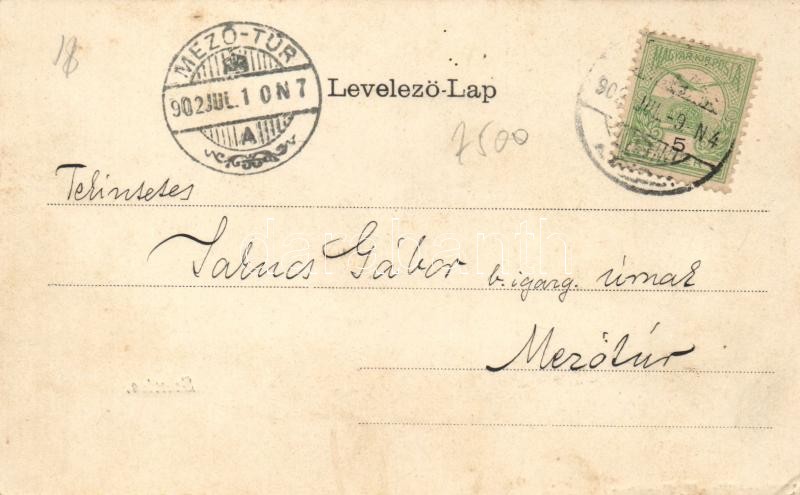 MEZŐ-TÚR
902 JUL. 10 N 7
A
Levelező-Lap
MAGYAR KIR. POSTA
902 JUL. -9. N. 4
5
7500
Tekintetes
Gábor b. igazg. úrnak
Mezőtúr